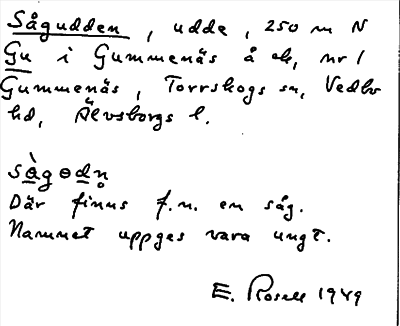 Sågudden, udde, 250 m N
Gu i Gummenäs å ek, nr 1
Gummenäs, Torrskogs sn, Vedbo
hd, Älvsborgs l.
sàgɵdn̥
Där finns f.n. en såg.
Namnet uppges vara ungt.
E. Rosell 1949